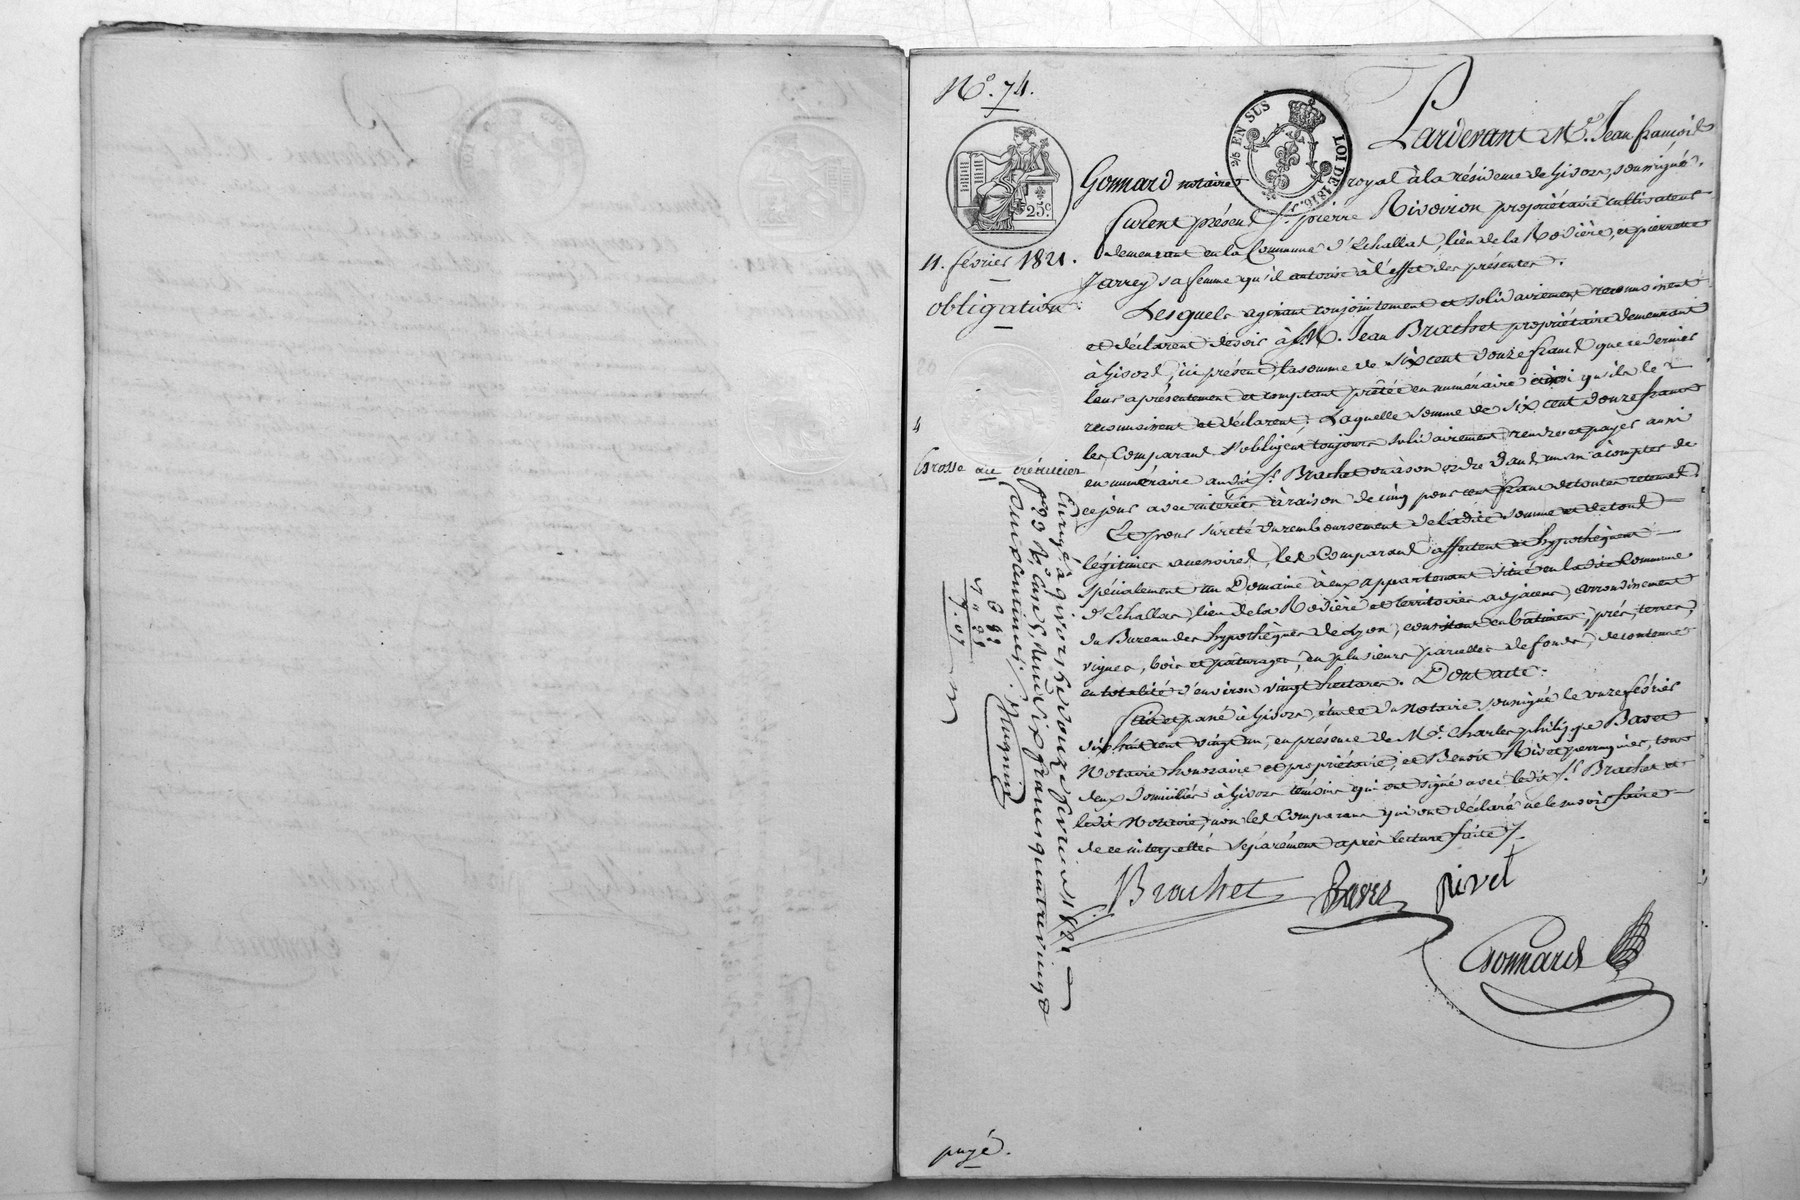 N.º 74.
2/5 EN SUS
LOI DE 1816.
25c.
11. février 1821.
obligation
20
4
Grosse au créancier
Pardevant Me. Jean françois
Gonnard notaire royal à la résidence de Givors, soussigné.
furent présens Sr. pierre Rivoiron propriétaire cultivateur
demeurant en la Commune d'Echallas, lieu de la Rodière, et pierrette
Jarrey sa femme qu'il autorise à l'effet des présentes.
Lesquels agissant conjointement et solidairement reconnoissent
et déclarent devoir à Sr. Jean Brachet propriétaire demeurant
à Givors, ici présent, la somme de six cent douze francs que ce dernier
leur a présentement et comptant prêtée en numéraire ainsi qu'ils le
reconnoissent et déclarent; Laquelle somme de six cent douze francs
les Comparans s'obligent toujours solidairement, rendre et payer aussi
en numéraire audit Sr. Brachet ou à son ordre dans un an à compter de
ce jour avec intérêts à raison de cinq pour cent franc de toutes retenues.
Et pour sureté du remboursement de ladite somme et de tous
légitimes accessoires, les Comparans affectent et hypothèquent
spécialement un Domaine à eux appartenant situé en ladite Commune
d'Echallas, lieu de la Rodière et territoires adjacens, arrondissement
du Bureau des hypothèques de Lyon, consistant en bâtimens, prés, terres,
vignes, bois et pâturages, en plusieurs parcelles de fonds, de contenue
en totalité d'environ vingt hectares. Dont acte.
fait et passé à Givors, étude du Notaire soussigné le onze février
dix huit cent vingt un, en présence de Mes. Charles philippe Bavet
Notaire honoraire et propriétaire, et Benoît Rivet perruquier, tous
deux domiciliés à Givors témoins qui ont signé avec ledit Sr. Brachet et
ledit Notaire, non les Comparans qui ont déclaré ne le savoir faire
de ce interpellés séparément après lecture faite.
Brachet
Rivet
Gonnard
Enregé à givors le douze fevrier 1821
fº 99 Rº, Case 5, reçu six francs quatre vingt
dix centimes. Magnin
payé.